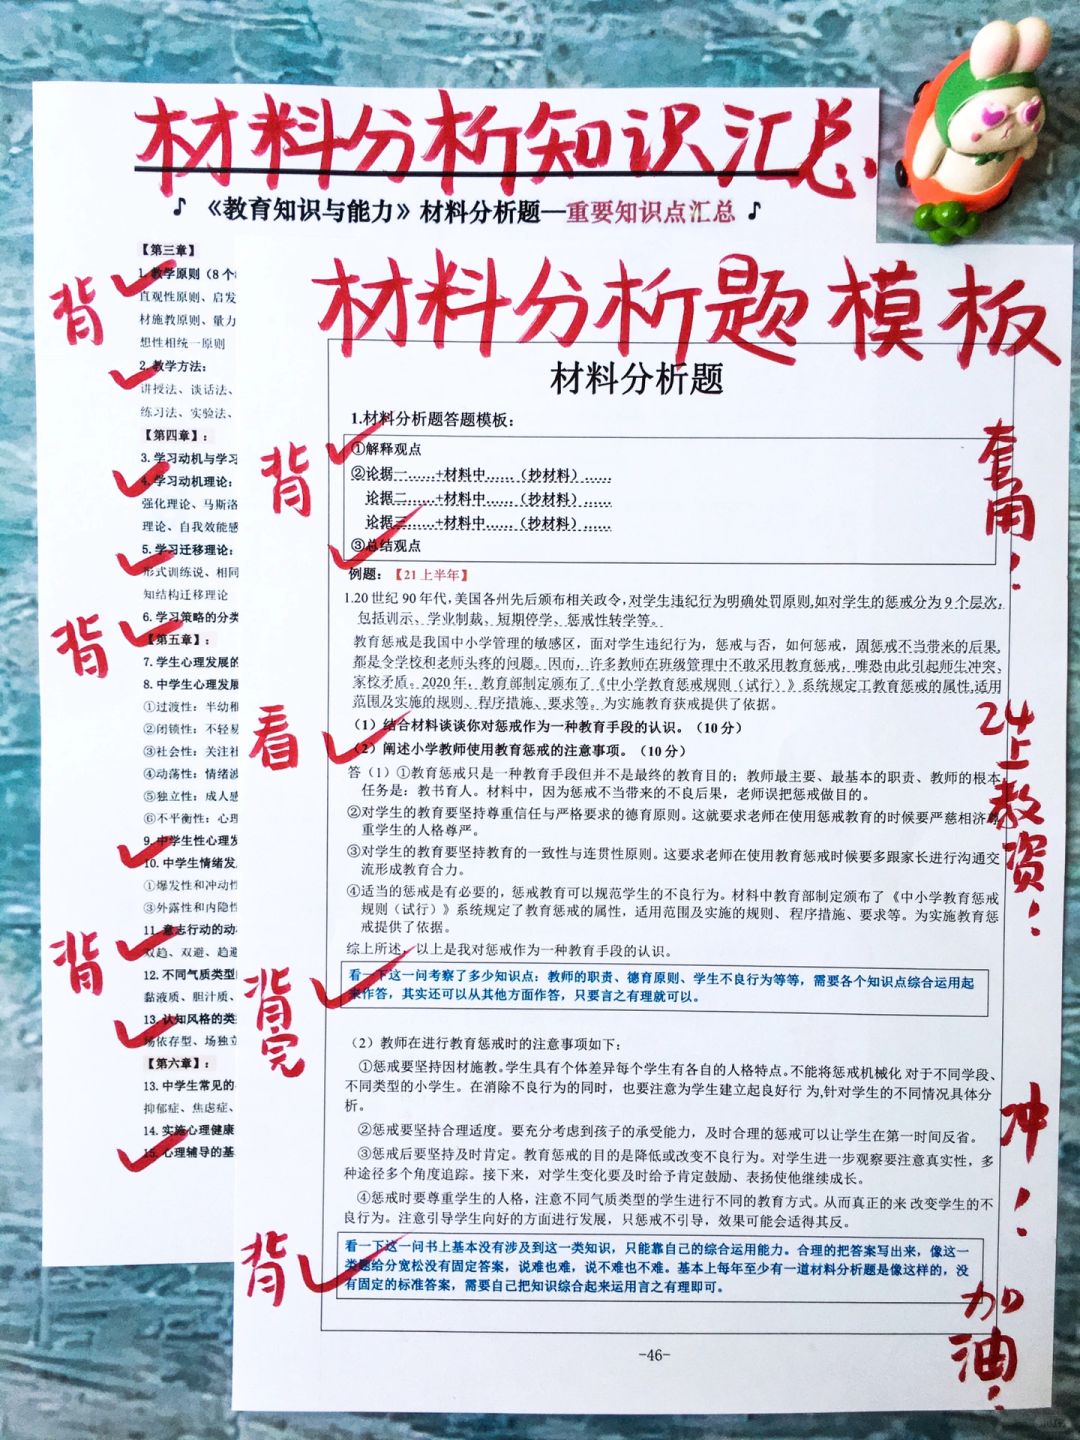 材料分析知识汇总
♪ 《教育知识与能力》材料分析题—重要知识点汇总 ♪
【第三章】
1. 教学原则（8个
直观性原则、启发
材施教原则、量力
想性相统一原则
2. 教学方法：
讲授法、谈话法、
练习法、实验法、
【第四章】：
3. 学习动机与学习
4. 学习动机理论：
强化理论、马斯洛
理论、自我效能感
5. 学习迁移理论：
形式训练说、相同
知结构迁移理论
6. 学习策略的分类
【第五章】：
7. 学生心理发展的
8. 中学生心理发展
①过渡性：半幼稚
②闭锁性：不轻易
③社会性：关注社
④动荡性：情绪波
⑤独立性：成人感
⑥不平衡性：心理
9. 中学生性心理发
10. 中学生情绪发
①爆发性和冲动性
③外露性和内隐性
11. 意志行动的动
双趋、双避、趋避
12. 不同气质类型
黏液质、胆汁质、
13. 认知风格的类
场依存型、场独立
【第六章】：
13. 中学生常见的
抑郁症、焦虑症、
14. 实施心理健康
15. 心理辅导的基
背
背
背
材料分析题模板
材料分析题
1.材料分析题答题模板：
①解释观点
②论据一……+材料中……（抄材料）……
论据二……+材料中……（抄材料）……
论据三……+材料中……（抄材料）……
③总结观点
例题：【21上半年】
1.20世纪90年代，美国各州先后颁布相关政令，对学生违纪行为明确处罚原则，如对学生的惩戒分为9个层次，
包括训示、学业制裁、短期停学、惩戒性转学等。
教育惩戒是我国中小学管理的敏感区，面对学生违纪行为，惩戒与否，如何惩戒，因惩戒不当带来的后果，
都是令学校和老师头疼的问题。因而，许多教师在班级管理中不敢采用教育惩戒，唯恐由此引起师生冲突、
家校矛盾。2020年，教育部制定颁布了《中小学教育惩戒规则（试行）》系统规定了教育惩戒的属性，适用
范围及实施的规则、程序措施、要求等。为实施教育获戒提供了依据。
（1）结合材料谈谈你对惩戒作为一种教育手段的认识。（10分）
（2）阐述小学教师使用教育惩戒的注意事项。（10分）
答（1）①教育惩戒只是一种教育手段但并不是最终的教育目的；教师最主要、最基本的职责、教师的根本
任务是：教书育人。材料中，因为惩戒不当带来的不良后果，老师误把惩戒做目的。
②对学生的教育要坚持尊重信任与严格要求的德育原则。这就要求老师在使用惩戒教育的时候要严慈相济尊
重学生的人格尊严。
③对学生的教育要坚持教育的一致性与连贯性原则。这要求老师在使用教育惩戒时候要多跟家长进行沟通交
流形成教育合力。
④适当的惩戒是有必要的，惩戒教育可以规范学生的不良行为。材料中教育部制定颁布了《中小学教育惩戒
规则（试行）》系统规定了教育惩戒的属性，适用范围及实施的规则、程序措施、要求等。为实施教育惩
戒提供了依据。
综上所述，以上是我对惩戒作为一种教育手段的认识。
看一下这一问考察了多少知识点：教师的职责、德育原则、学生不良行为等等，需要各个知识点综合运用起
来作答，其实还可以从其他方面作答，只要言之有理就可以。
（2）教师在进行教育惩戒时的注意事项如下：
①惩戒要坚持因材施教。学生具有个体差异每个学生有各自的人格特点。不能将惩戒机械化 对于不同学段、
不同类型的小学生。在消除不良行为的同时，也要注意为学生建立起良好行 为，针对学生的不同情况具体分
析。
②惩戒要坚持合理适度。要充分考虑到孩子的承受能力，及时合理的惩戒可以让学生在第一时间反省。
③惩戒后要坚持及时肯定。教育惩戒的目的是降低或改变不良行为。对学生进一步观察要注意真实性，多
种途径多个角度追踪。接下来，对学生变化要及时给予肯定鼓励、表扬使他继续成长。
④惩戒时要尊重学生的人格，注意不同气质类型的学生进行不同的教育方式。从而真正的来 改变学生的不
良行为。注意引导学生向好的方面进行发展，只惩戒不引导，效果可能会适得其反。
看一下这一问书上基本没有涉及到这一类知识，只能靠自己的综合运用能力。合理的把答案写出来，像这一
类题给分宽松没有固定答案，说难也难，说不难也不难。基本上每年至少有一道材料分析题是像这样的，没
有固定的标准答案，需要自己把知识综合起来运用言之有理即可。
-46-
背
看
背完
背
套用！
24上教资！
冲！
加油！